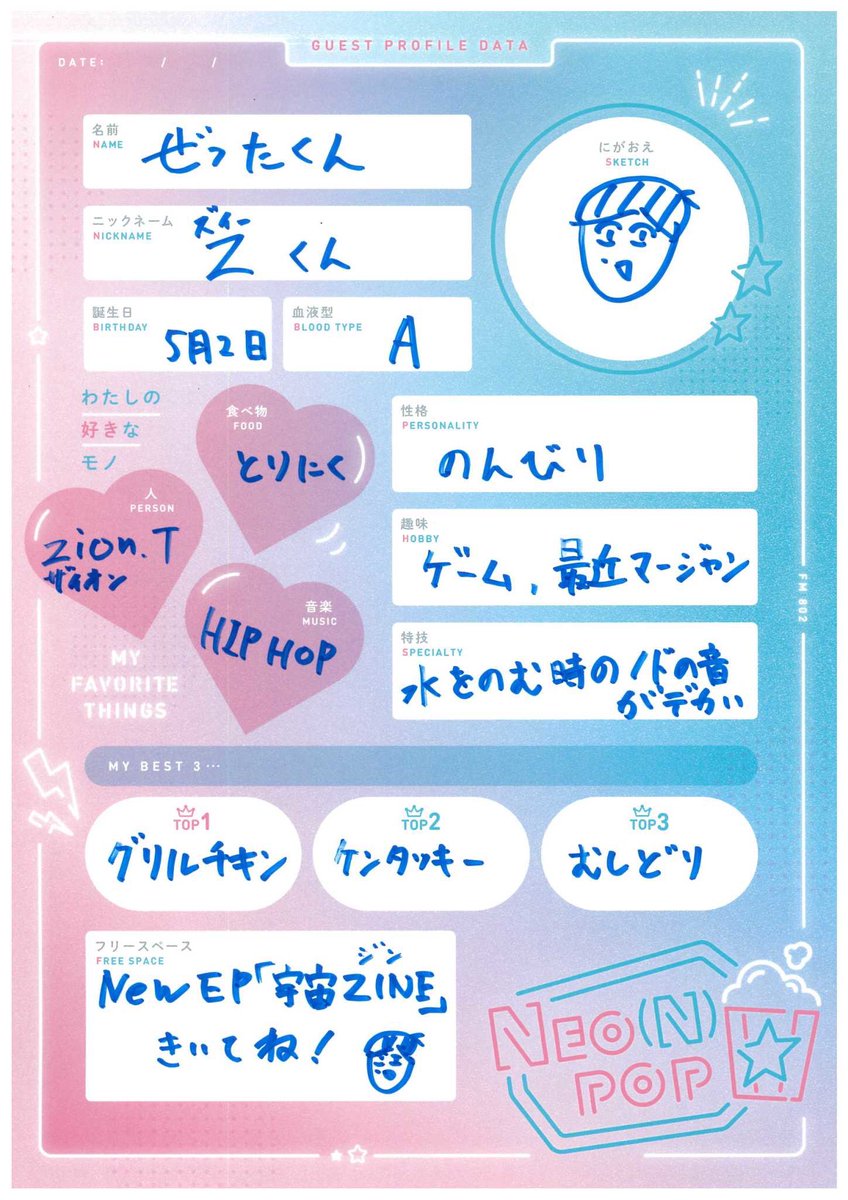 GUEST PROFILE DATA
DATE: / /
名前
NAME
ぜったくん
ニックネーム
NICKNAME
ズィー
Zくん
誕生日
BIRTHDAY
5月2日
血液型
BLOOD TYPE
A
にがおえ
SKETCH
わたしの
好きな
モノ
食べ物
FOOD
とりにく
人
PERSON
zion.T
ザイオン
音楽
MUSIC
HIPHOP
MY
FAVORITE
THINGS
性格
PERSONALITY
のんびり
趣味
HOBBY
ゲーム、最近マージャン
特技
SPECIALTY
水をのむ時のノドの音
がデカい
FM 802
MY BEST 3…
TOP1
グリルチキン
TOP2
ケンタッキー
TOP3
むしどり
フリースペース
FREE SPACE
ジン
New EP「宇宙ZINE」
きいてね!
NEO(N)
POP